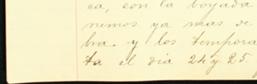 ca, con la boyada
nemos ya mas de
bra. y los tempora
ta el dia 24 y 25.